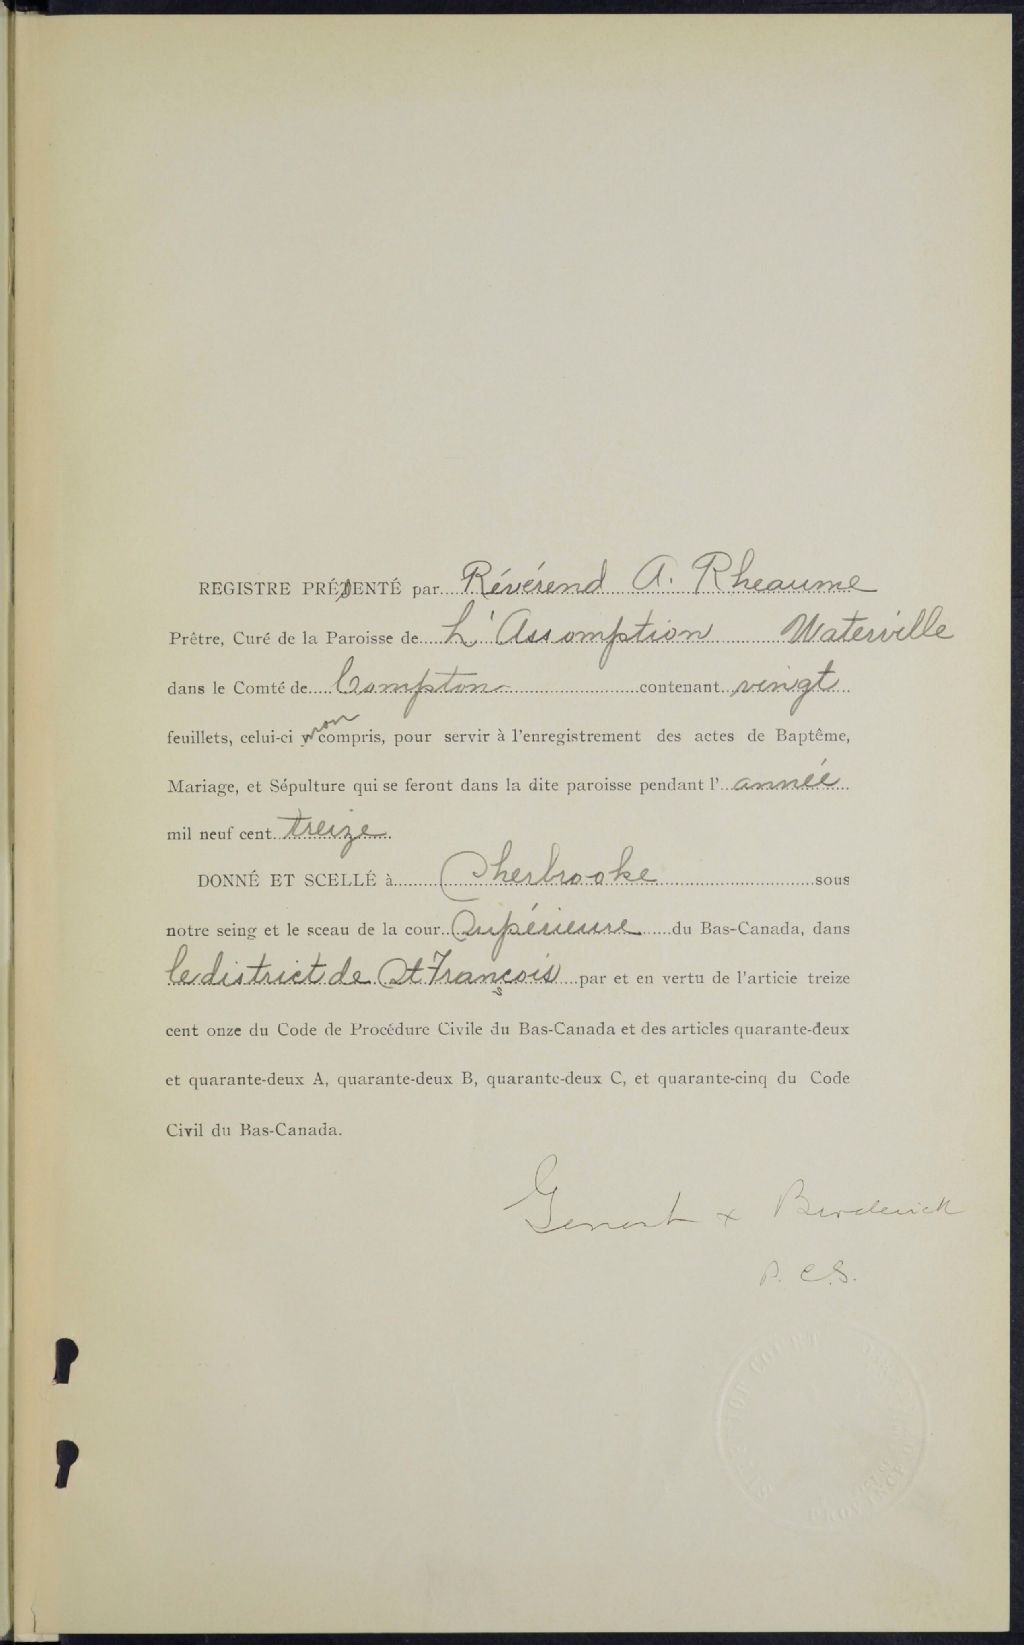 REGISTRE PRÉSENTÉ par Révérend A. Rheaume
Prêtre, Curé de la Paroisse de L'Assomption Waterville
dans le Comté de Compton contenant vingt
feuillets, celui-ci non compris, pour servir à l'enregistrement des actes de Baptême,
Mariage, et Sépulture qui se feront dans la dite paroisse pendant l'année
mil neuf cent treize
DONNÉ ET SCELLÉ à Sherbrooke sous
notre seing et le sceau de la cour Supérieure du Bas-Canada, dans
le district de St François par et en vertu de l'articie treize
cent onze du Code de Procédure Civile du Bas-Canada et des articles quarante-deux
et quarante-deux A, quarante-deux B, quarante-deux C, et quarante-cinq du Code
Civil du Bas-Canada.
P. C. S.